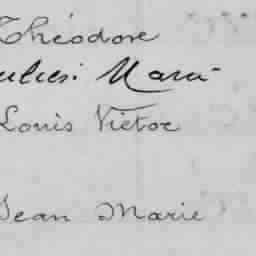 Théodore
Marie
Louis Victor
Jean Marie